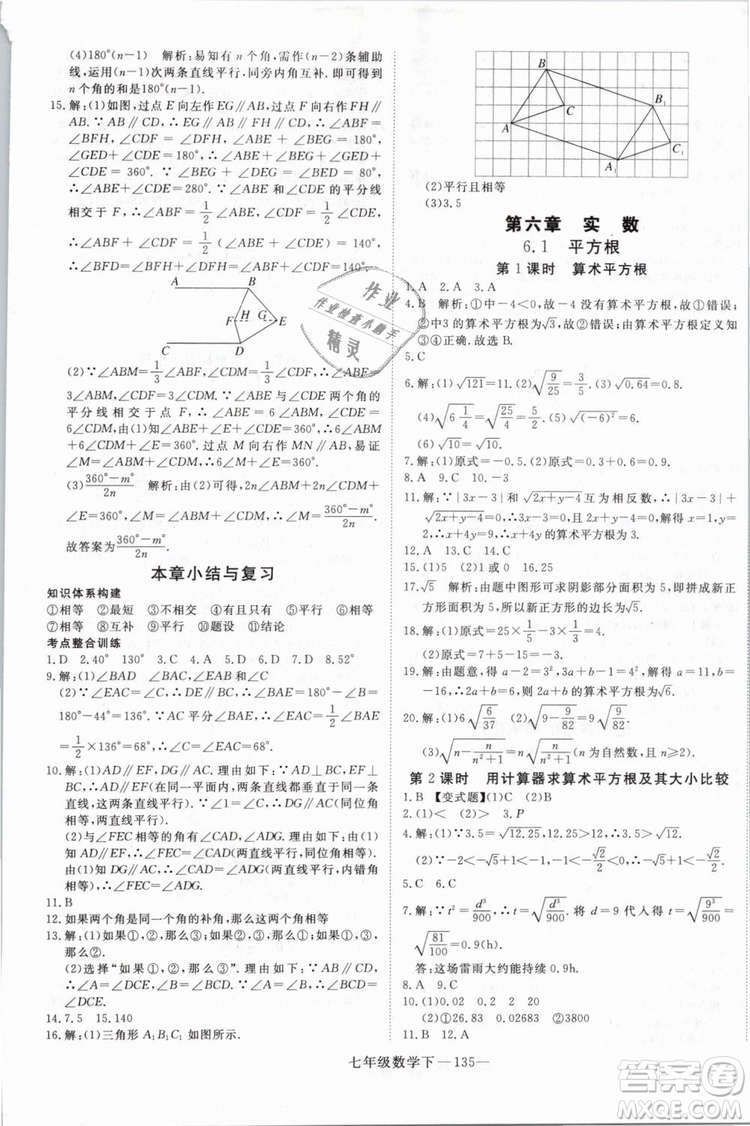 (4)180°(n−1) 解析:易知有 n 个角,需作(n−2)条辅助
线,运用(n−1)次两条直线平行,同旁内角互补.故
n 个角的和是180°(n−1).
15.解:(1)如图,过点 E 向左作 EG∥AB,过点 F 向右作 FH∥
AB.∵AB∥CD,∴AB∥CD∥FH∥EG,∴∠ABF=
∠BFH,∠CDF=∠DFH,∠ABE+∠BEG=180°,
∠GED+∠CDE=180°,∴∠ABE+∠BEG+∠GED+
∠CDE=360°.∵∠BED=∠BEG+∠DEG=80°,
∴∠ABE+∠CDE=280°.∵∠ABE 和∠CDE 的平分线
相交于 F,∴∠ABF=1/2∠ABE,∠CDF=1/2∠CDE,
∴∠BFD=∠BFH+∠DFH=∠ABF+∠CDF=140°.
A B
F H G E
C D
(2)∵∠ABM=1/3∠ABF,∠CDM=1/3∠CDF,∴∠ABF=
3∠ABM,∠CDF=3∠CDM.∵∠ABE 与∠CDE 两个角的
平分线相交于点 F,∴∠ABE=6∠ABM,∠CDE=6∠CDM.
由(1)知∠ABE+∠E+∠CDE=360°,∴6∠ABM
+6∠CDM+∠E=360°.过点 M 向右作 MN∥AB,易证
∠M=∠ABM+∠CDM,∴6∠M+∠E=360°.
(3)(360°−m°)/2n 解析:由(2)可得,2n∠ABM+2n∠CDM
+∠E=360°,∠M=∠ABM+∠CDM,∴∠M=(360°−m°)/2n.
故答案为(360°−m°)/2n.
本章小结与复习
知识体系构建
①相等 ②最短 ③不相交 ④有且只有 ⑤相等
⑥相等 ⑦互补 ⑧平行 ⑨相等 ⑩题设 ⑪结论
考点整合训练
1.D 2.40° 130° 3.C 4.C 5.B 6.D 7.D 8.52°
9.解:(1)∠BAD ∠EAC DE ∠BAD ∠EAC
(2)∵∠EAC=∠C,∴DE∥BC,∴∠BAE=180°−∠B=
180°−44°=136°.∵AC 平分∠BAE,∴∠EAC=1/2∠BAE=
1/2×136°=68°,∴∠C=∠EAC=68°.
10.解:(1)AD∥EF,DG∥AC.理由如下:∵AD⊥BC,
EF⊥BC,∴AD∥EF(在同一平面内,垂直于同一条直线的
两直线平行).∵∠BDG=∠C,∴DG∥AC(同位角相等,
两直线平行).
(2)与∠FEC 相等的角有∠CAD,∠ADG.理由如下:
∵AD∥EF,∴∠FEC=∠CAD(两直线平行,同位角相等).
∵DG∥AC,∴∠CAD=∠ADG(两直线平行,内错角相
等),∴与∠FEC 相等的角有∠CAD,∠ADG.
11.B
12.如果两个角是同一个角的补角,那么这两个角相等
13.解:(1)如果①,②,那么③;如果①,③,那么②;如果②,
③,那么①.
(2)选择“如果①,②,那么③”.证明如下:∵AB∥CD,
∴∠B=∠DCE.∵∠B=∠D,∴∠D=∠DCE,∴∠E=
∠DCE,∴BE∥DF.
14.7.5 15.140
16.解:(1)三角形 A₁B₁C₁ 如图所示.
B
B₁
C
A
A₁
C₁
(2)平行且相等
(3)3.5
第六章 实 数
6.1 平方根
第 1 课时 算术平方根
1.A 2.D 3.C
4.B 解析:①中−4<0,故−4 没有算术平方根,故①错误;
②中√9=3,3 的算术平方根为√3,故②错误;由算术平方根定义知
③④正确.故选 B.
5.C
6.解:(1)√121=11.(2)√(9/25)=3/5.(3)√0.64=0.8.
(4)√(6 1/4)=√(25/4)=5/2.(5)√(−6)²=6.
7.解:(1)原式=−0.5.(2)原式=10.
8.A 9.C 10.−3
11.解:∵|3x−3|与√(2x+y−4)互为相反数,∴|3x−3|+
√(2x+y−4)=0,∴3x−3=0,2x+y−4=0,解得x=1,y=2,
∴x+4y=9,∴x+4y 的算术平方根为 3.
12.A 13.A 14.C
15.(1)5 (2)1或0 16.25
17.√5 解析:由题中图形可求阴影部分面积为 5,即拼成的新正
方形面积为 5,∴新正方形的边长为√5.
18.解:(1)原式=25×1/5−3×1/3=5−1=4.
(2)原式=3/2+0.5−4=−2.
19.解:由题意,得 a−2=3²,∴a=11.
−16,∴a+b=−5,∴a+b没有算术平方根.
20.解:(1)6√(6/37) (2)√(9−9/82)=9√(9/82).
(3)√(n−n/(n²+1))=n√(n/(n²+1))(n 为自然数,且 n≥2).
第 2 课时 用计算器求算术平方根及其大小比较
1.B 【变式题】(1)C (2)B
2.(1)< (2)> 3.P
4.解:(1)∵3.5=√12.25,12.25>12,∴√12<3.5.
(2)∵−2<−√3<−1,−1<−√2/2<0,∴−√3<−√2/2.
5.C 6.C
7.解:∵t²=d³/900,∴t=√(d³/900).把 d=9 代入,得 t=√(9³/900)=
√(81/100)=0.9(h).
答:这场雷雨大约能持续 0.9h.
8.A 9.C
10.(1)0.02 0.2 2 20
(2)①0.2683 ②0.02683 ③3800
11.B 12.A
七年级数学下 —135—
作业
作业检查小助手
精灵
答案圈
MXQE.COM